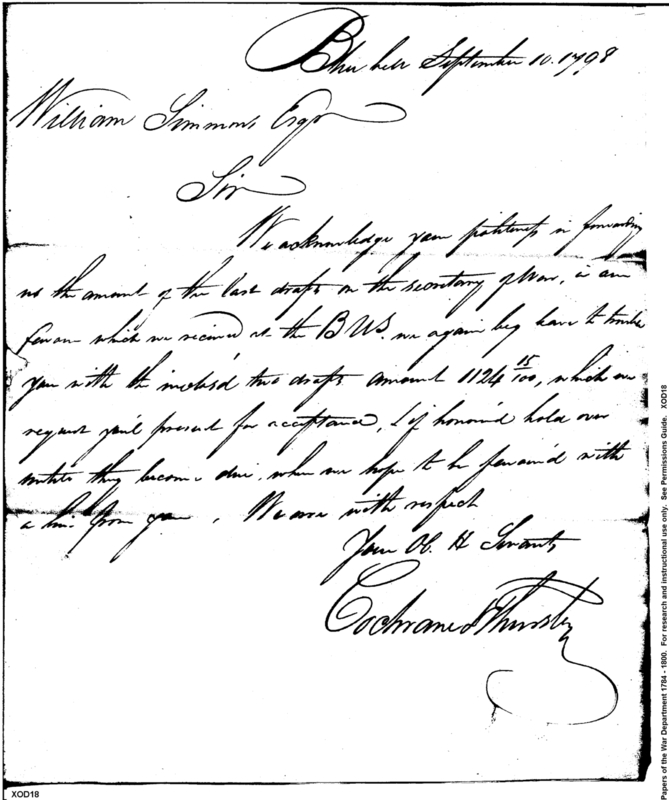 September 10. 1798
William Simmons Esqr
Sir
We acknowledge your politeness in forwarding
us the amount of the last drafts on the secretary of War, in our
favour which we received at the B US. we again beg leave to trouble
you with the inclos'd two drafts amount 1124 15/100, which we
request you'l present for acceptance, & if honor'd hold over
untill they become due, when we hope to be favour'd with
a line from you. We are with respect
Your Ob. H Servants
Cochrane & Thursby
XOD18
Papers of the War Department 1784 - 1800. For research and instructional use only. See Permissions Guide. XOD18